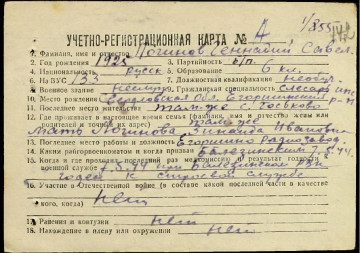 УЧЕТНО-РЕГИСТРАЦИОННАЯ КАРТА № 4
1. Фамилия, имя и отчество Логинов Геннадий Савел.
2. Год рождения 1925 3. Партийность б/п.
4. Национальность русск 5. Образование 6 кл.
6. На ВУС 133 7. Должностная квалификация необуч.
8. Военное звание 9. Гражданская специальность слесарь
10. Место рождения обл. Егоршинский р-н
11. Последнее место жительства
12. Где проживает в настоящее время семья (фамилия, имя и отчество жены или родителей и точный их адрес)
Мать Логинова Зинаида Ивановна
13. Последнее место работы и должность Егоршино Радиозавод
14. Каким райвоенкоматом и когда призван Балезинским
15. Когда и где проходил последний раз медкомиссию и результат годности к военной службе при Балезинском РВК
годен к строевой службе
16. Участие в Отечественной войне (в составе какой последней части в качестве кого, когда) нет
17. Ранения и контузии нет
18. Нахождение в плену или окружении нет